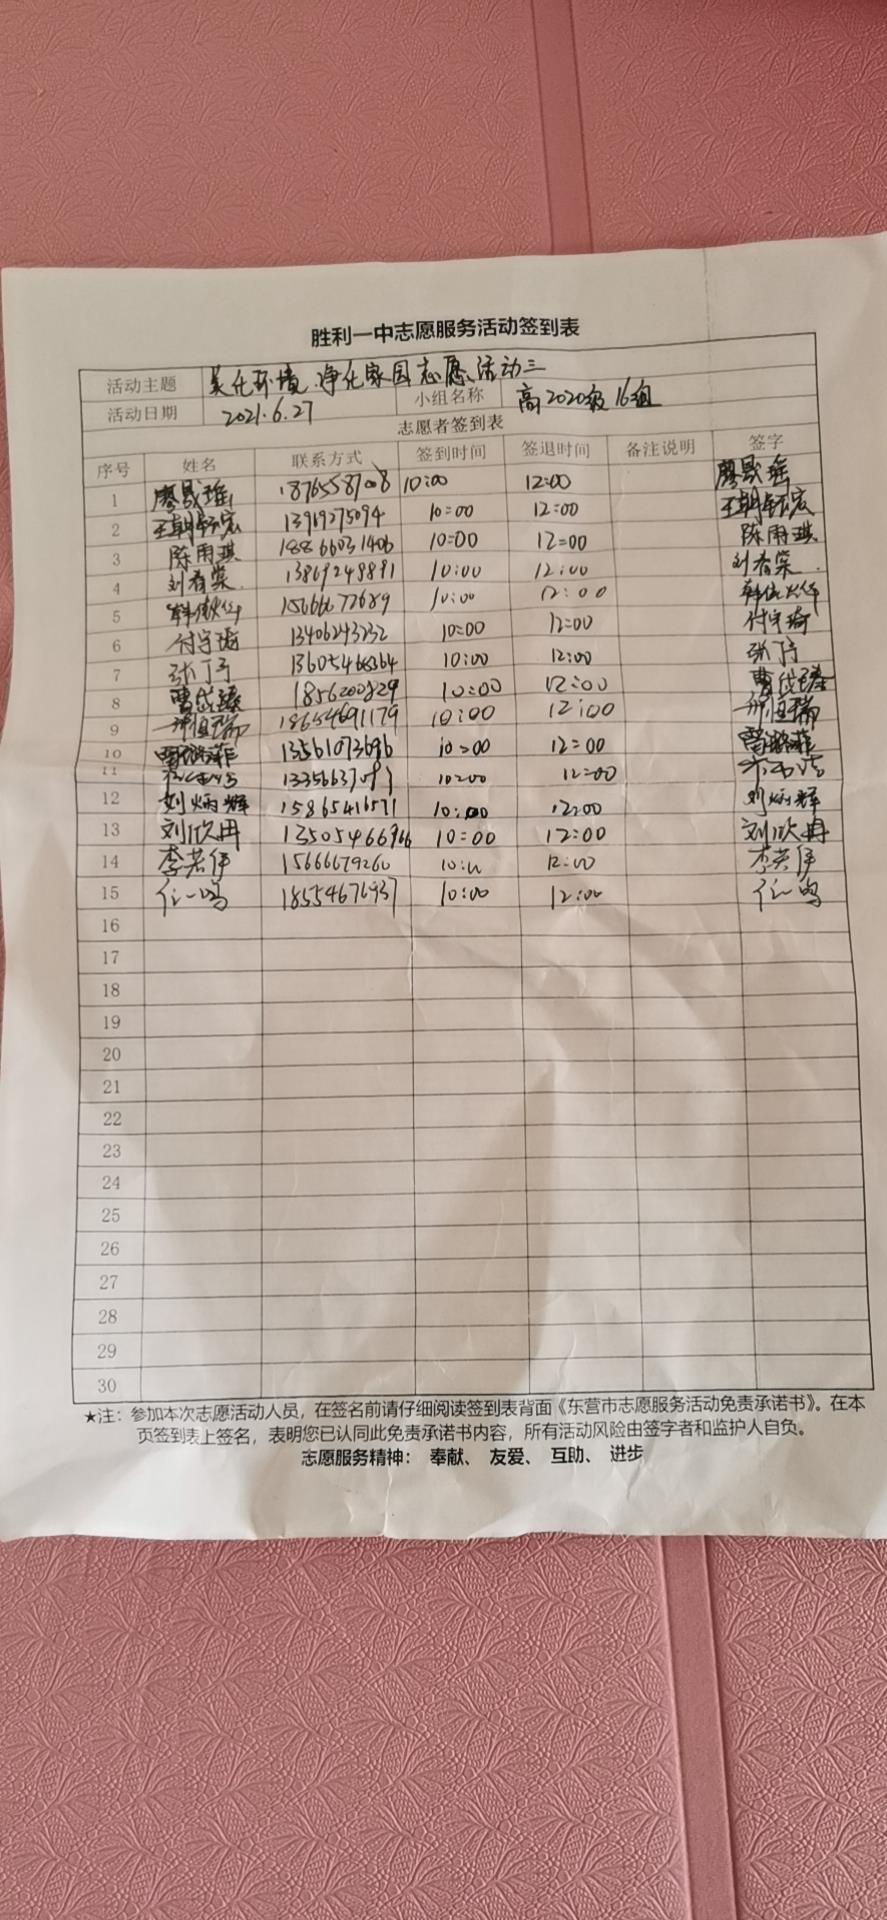 胜利一中志愿服务活动签到表
活动主题 美化环境 净化家园志愿活动三
活动日期 2021.6.27 小组名称 高2020级16组
志愿者签到表
序号 姓名 联系方式 签到时间 签退时间 备注说明 签字
1 廖晟瑶 18765587008 10:00 12:00 廖晟瑶
2 王朝轩宏 13919275094 10:00 12:00 王朝轩宏
3 陈雨琪 18866031406 10:00 12:00 陈雨琪
4 刘春棠 13869248891 10:00 12:00 刘春棠
5 15666772689 10:00 12:00
6 付宇琦 13406243232 10:00 12:00 付宇琦
7 13605466364 10:00 12:00
8 曹岱臻 1856200829 10:00 12:00 曹岱臻
9 邢恒瑞 18654691179 10:00 12:00 邢恒瑞
10 13561073696 10:00 12:00
11 10:00 12:00
12 刘炳辉 15865416571 10:00 12:00 刘炳辉
13 刘欣冉 13505466966 10:00 12:00 刘欣冉
14 李若伊 15666679260 10:00 12:00 李若伊
15 任一鸣 18554676937 10:00 12:00 任一鸣
16
17
18
19
20
21
22
23
24
25
26
27
28
29
30
★注：参加本次志愿活动人员，在签名前请仔细阅读签到表背面《东营市志愿服务活动免责承诺书》。在本
页签到表上签名，表明您已认同此免责承诺书内容，所有活动风险由签字者和监护人自负。
志愿服务精神： 奉献、 友爱、 互助、 进步